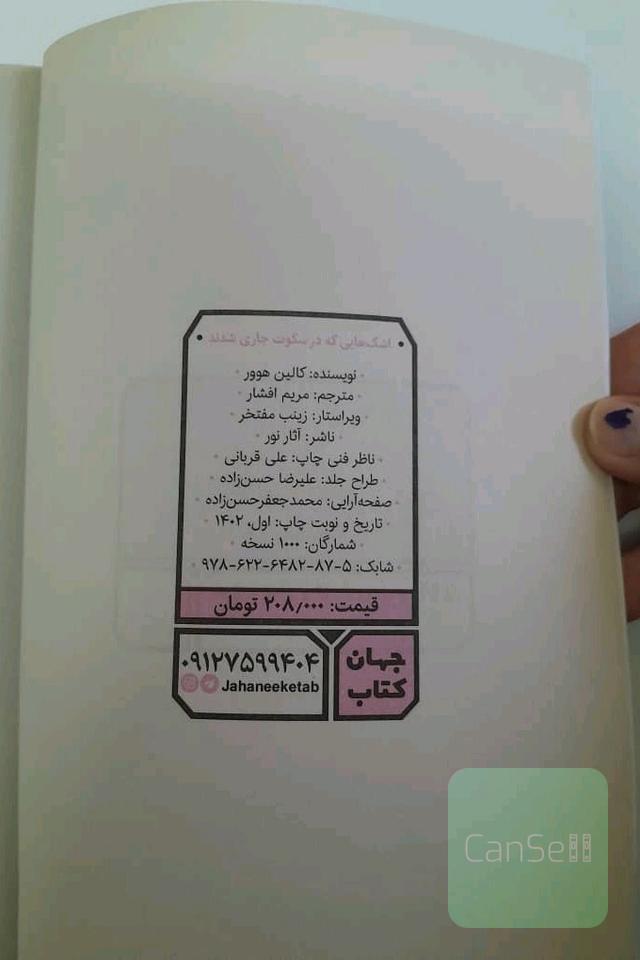 اشک‌هایی که در سکوت جاری شدند
نویسنده: کالین هوور
مترجم: مریم افشار
ویراستار: زینب مفتخر
ناشر: آثار نور
ناظر فنی چاپ: علی قربانی
طراح جلد: علیرضا حسن‌زاده
صفحه‌آرایی: محمدجعفر حسن‌زاده
تاریخ و نوبت چاپ: اول، ۱۴۰۲
شمارگان: ۱۰۰۰ نسخه
شابک: ۵-۸۷-۶۴۸۲-۶۲۲-۹۷۸
قیمت: ۲۰۸٫۰۰۰ تومان
جهان
کتاب
۰۹۱۲۷۵۹۹۴۰۴
Jahaneeketab
CanSell